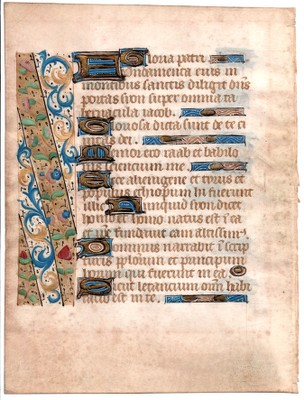 Gloria patri
Fundamenta eius in
montibus sanctis diligit dn̄s
portas syon super omnia ta
bernacula iacob.
Gloriosa dicta sunt de te ci
uitas dei.
Memor ero raab et babilo
nis scientium me.
Ecce alienigene et tirus et
populus ethyopum hi fuerunt
illic. Nunquid syon dicet
homo et homo natus est ī ea
et ipse fundauit eam altissim9
Dominus narrabit ī scrip
turis pplorum et principum
horum qui fuerunt in ea.
Sicut letancium om̄ habi
tacio est in te.